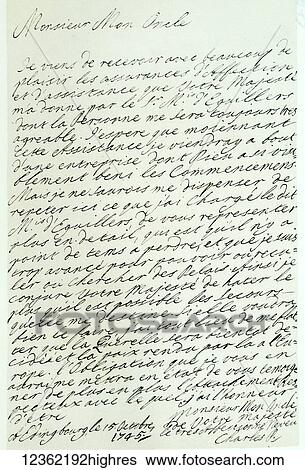 Monsieur Mon Oncle
Je viens de recevoir avec beaucoup de
plaisir les assurances d'affection
et d'assistance que Votre Majesté
m'a donné par le Sr. d'Eguillers
dont la Personne me sera toujours très
agreable. J'espere que moiennant
Cette Assistance, je viendray a bout
d'une entreprise dont Dieu a si visi
blement beni les Commencemens
Mais je ne saurois me dispenser de
repeter ici ce que j'ai Chargé le dit
d'Eguillers de vous representer
plus en detail, qui est qu'il n'y a
point de tems a perdre, et que je suis
trop avancé pour pouvoir ou recu-
ler ou Chercher des Delais ainsi je
conjure Votre Majesté de hater le
plus qu'il est possible les secours
que
bien
ver la Querelle sera bientot de-
cidée et la paix rendu par la a l'Eu-
rope. l'Obligation que je vous en
aurai me mettra en Etat de vous temoig-
ner de plus en plus l'attachement
avec lequel j'ai l'honneur
d'être
Monsieur Mon Oncle
de Votre Majesté
a Edingbourg le 15 Octbre
1745
Charles P.
FOTOSEARCH
12362192highres www.fotosearch.com